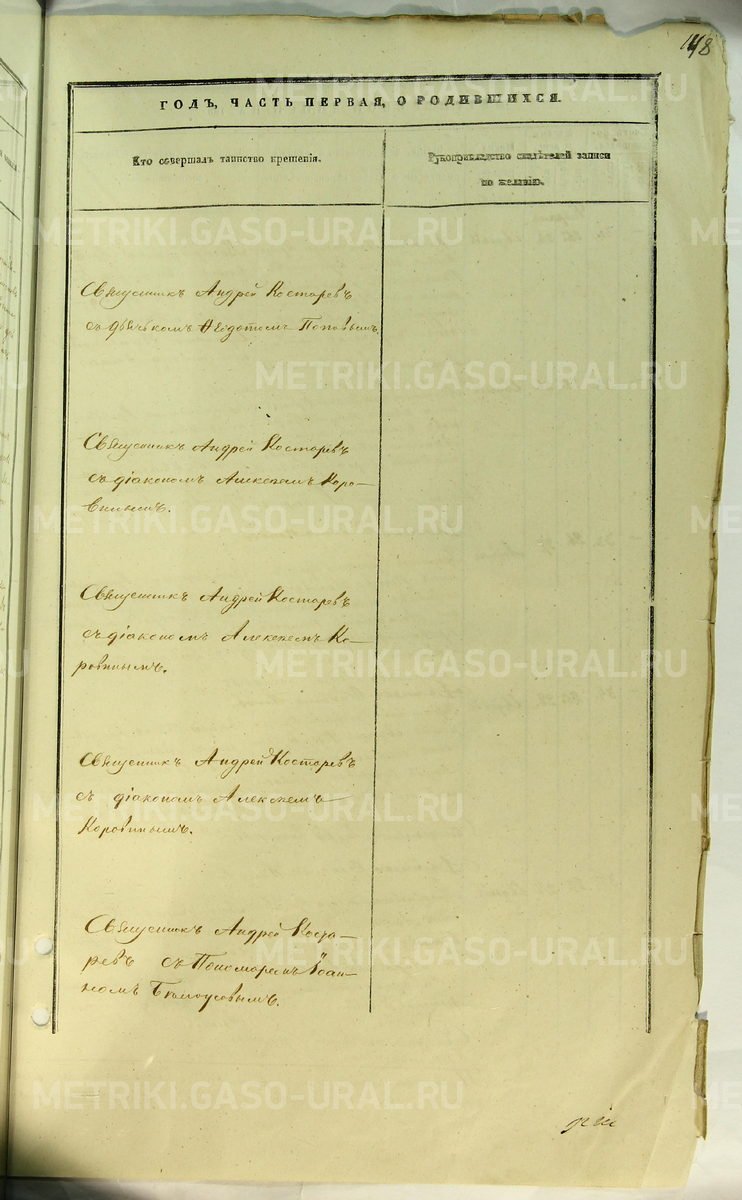 148
ГОДЪ, ЧАСТЬ ПЕРВАЯ, О РОДИВШИХСЯ.
Кто совершалъ таинство крещенія.
Рукоприкладство свидѣтелей записи
по желанію.
Священникъ Андрей Костаревъ
съ дьячкомъ Ѳеодотомъ Поповымъ
Священникъ Андрей Костаревъ
съ діакономъ Алексѣемъ Коро-
винымъ.
Священникъ Андрей Костаревъ
съ діакономъ Алексѣемъ Ко-
ровинымъ.
Священникъ Андрей Костаревъ
съ діакономъ Алексѣемъ
Коровинымъ.
Священникъ Андрей Коста-
ревъ съ Пономаремъ Іоан-
номъ Бѣлоусовымъ.
METRIKI.GASO-URAL.RU